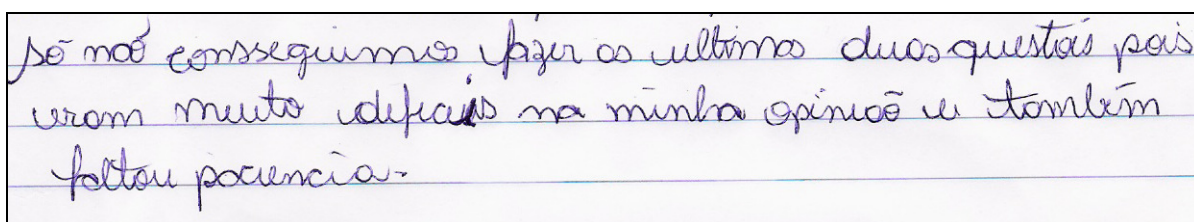 só não consseguimos fazer as ultimas duas questois pois
eram muito deficeis na minha opinião e também
faltou paciencia.